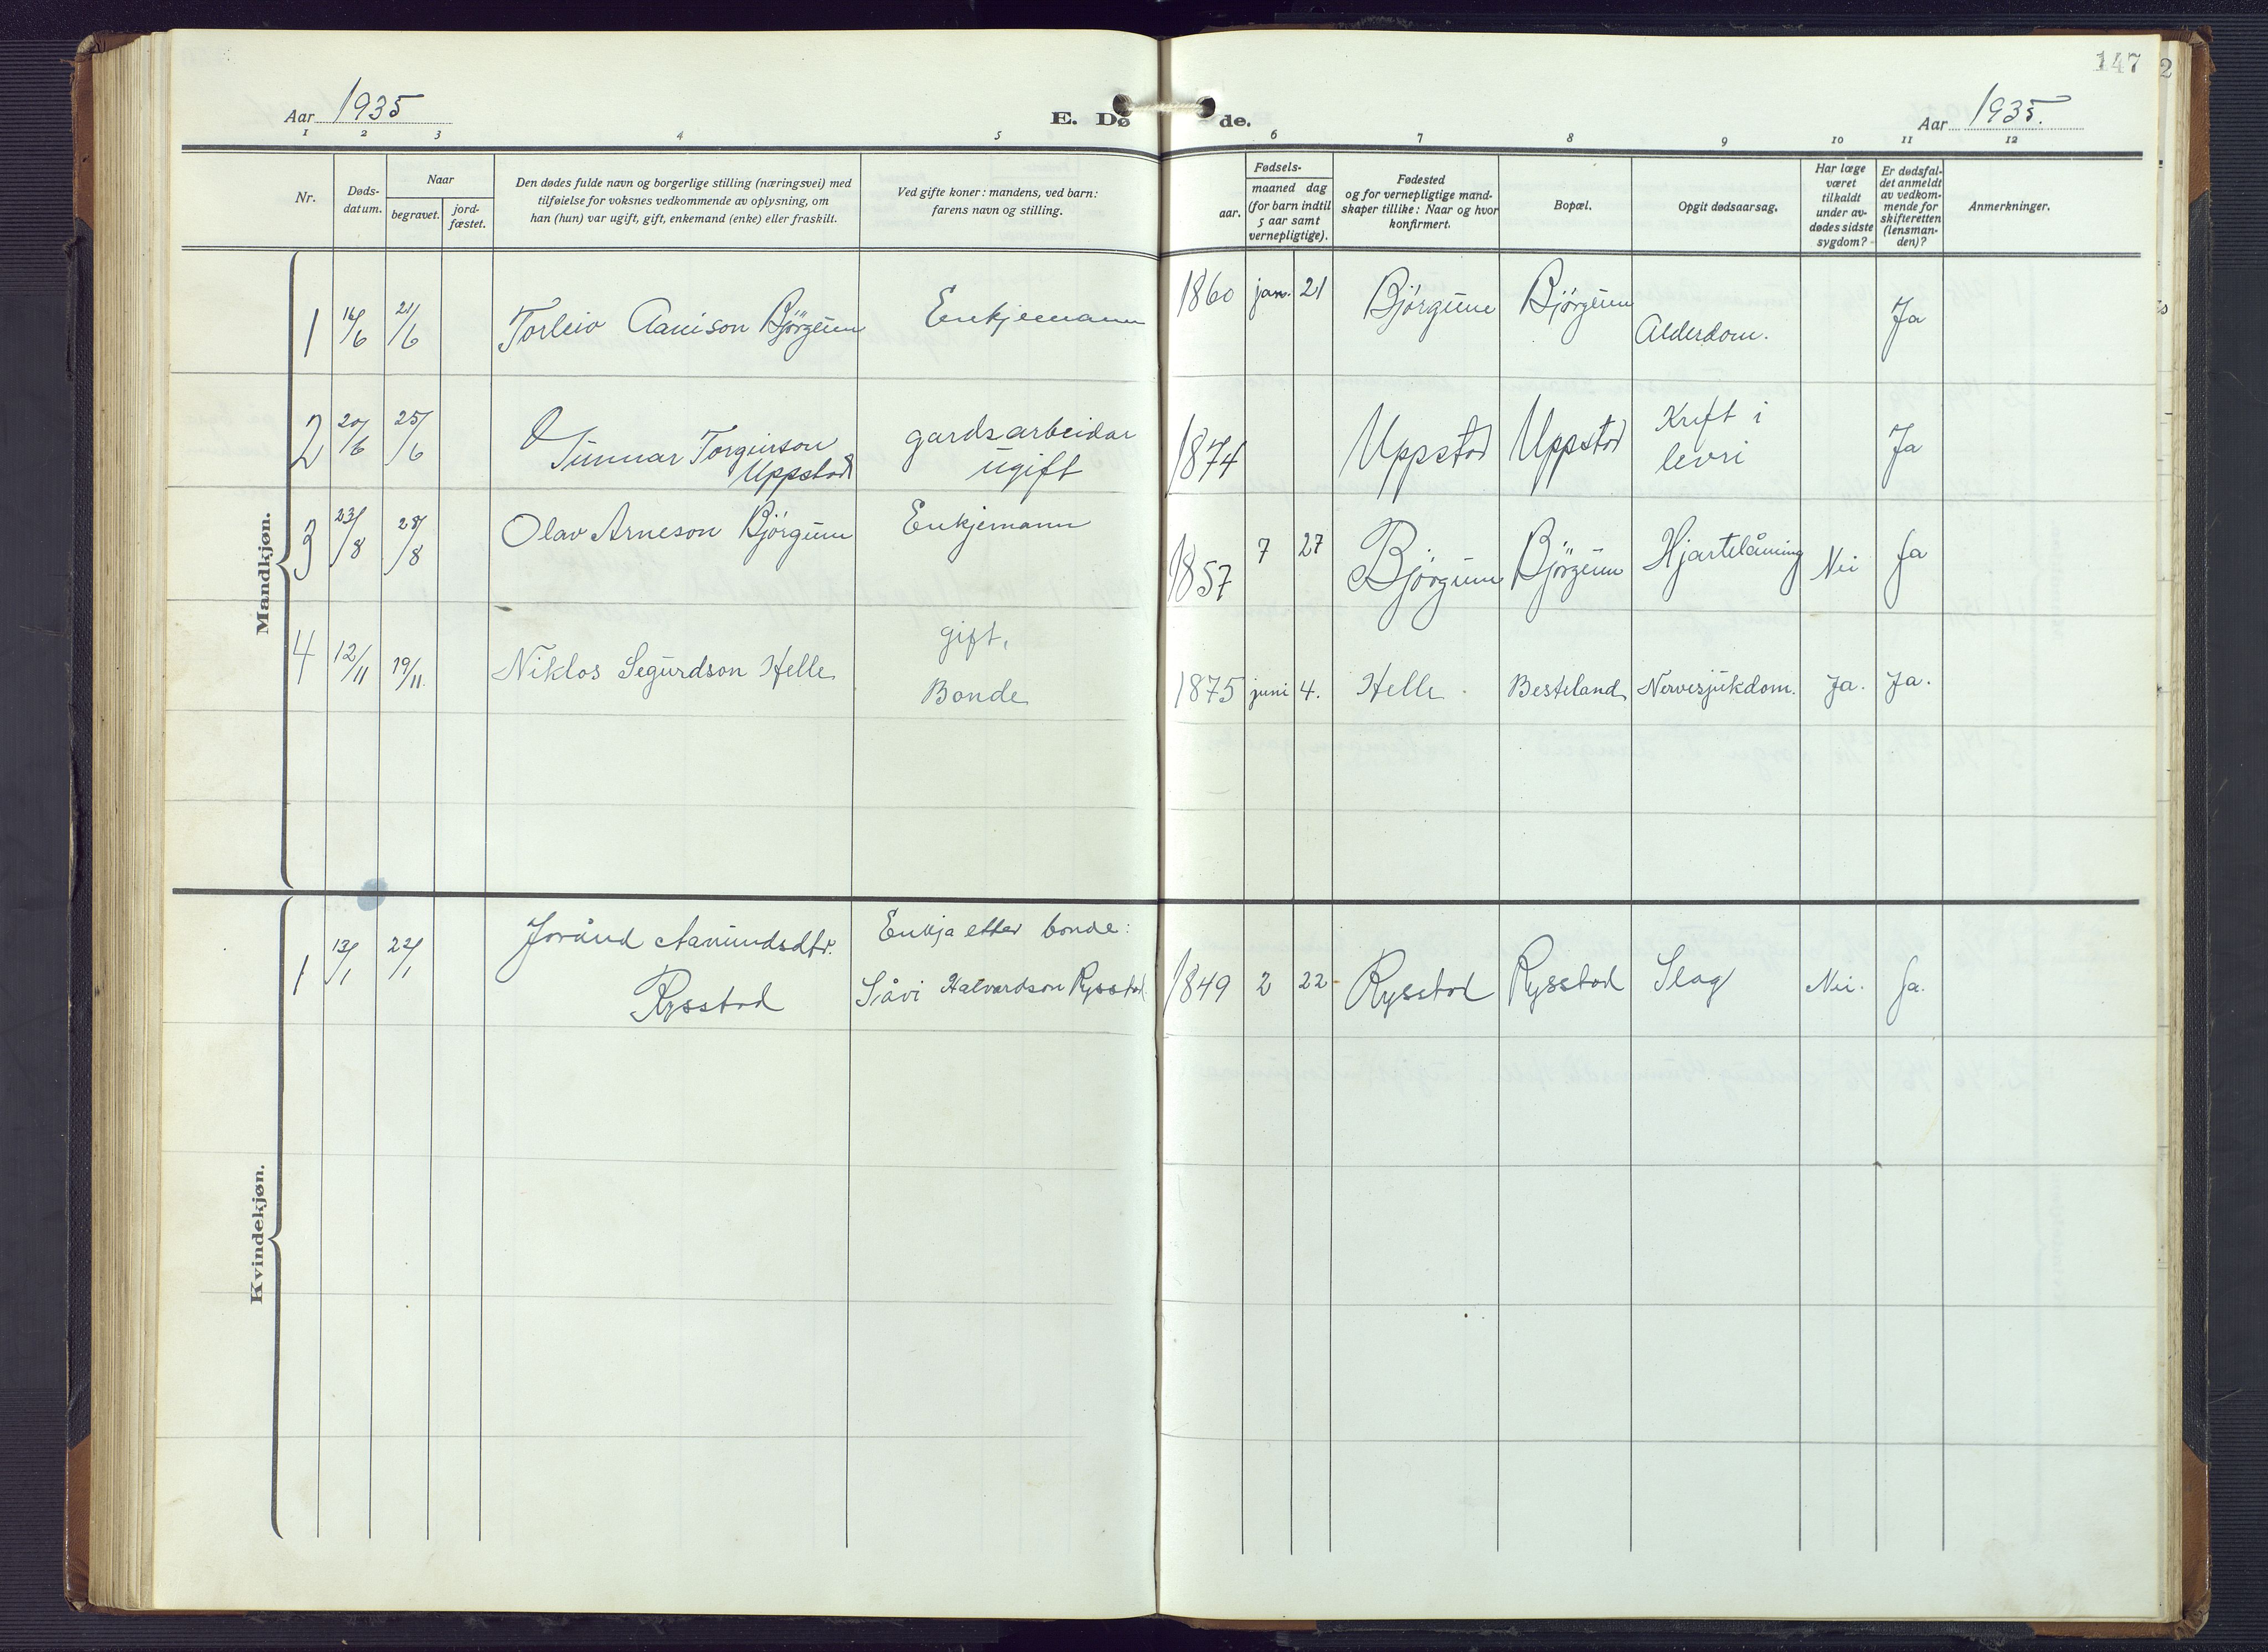 147
2
Aar 1935
E. Dø de.
Aar 1935.
1 2 3 4 5 6 7 8 9 10 11 12
Nr.
Døds-
datum.
Naar
begravet.
jord-
fæstet.
Den dødes fulde navn og borgerlige stilling (næringsvei) med
tilføielse for voksnes vedkommende av oplysning, om
han (hun) var ugift, gift, enkemand (enke) eller fraskilt.
Ved gifte koner: mandens, ved barn:
farens navn og stilling.
Fødsels-
aar.
maaned dag
(for barn indtil
5 aar samt
vernepligtige).
Fødested
og for vernepligtige mand-
skaper tillike: Naar og hvor
konfirmert.
Bopæl.
Opgit dødsaarsag.
Har læge
været
tilkaldt
under av-
dødes sidste
sygdom?
Er dødsfal-
det anmeldt
av vedkom-
mende for
skifteretten
(lensman-
den)?
Anmerkninger.
Mandkjøn.
1 16/6 21/6 Torleiv Aanison Björgum Enkjemann 1860 jan. 21 Björgum Björgum Alderdom. Ja
2 20/6 25/6 Gunnar Torgeirson
Uppstad
gardsarbeidar
ugift
1874 Uppstad Uppstad Kreft i
levri
Ja
3 23/8 28/8 Olav Arneson Björgum Enkjemann 1857 7 27 Björgum Björgum Hjartelåming Nei Ja
4 12/11 19/11. Niklos Segurdson Helle
gift,
Bonde
1875 juni 4. Helle. Besteland Nervesjukdom. Ja. Ja.
Kvindekjøn.
1 13/1 22/1 Jorånd Aanundsdtr.
Rysstad
Enkja etter bonde:
Såvi Halvardson Rysstad.
1849 2 22 Rysstad Rysstad Slag Nei. Ja.